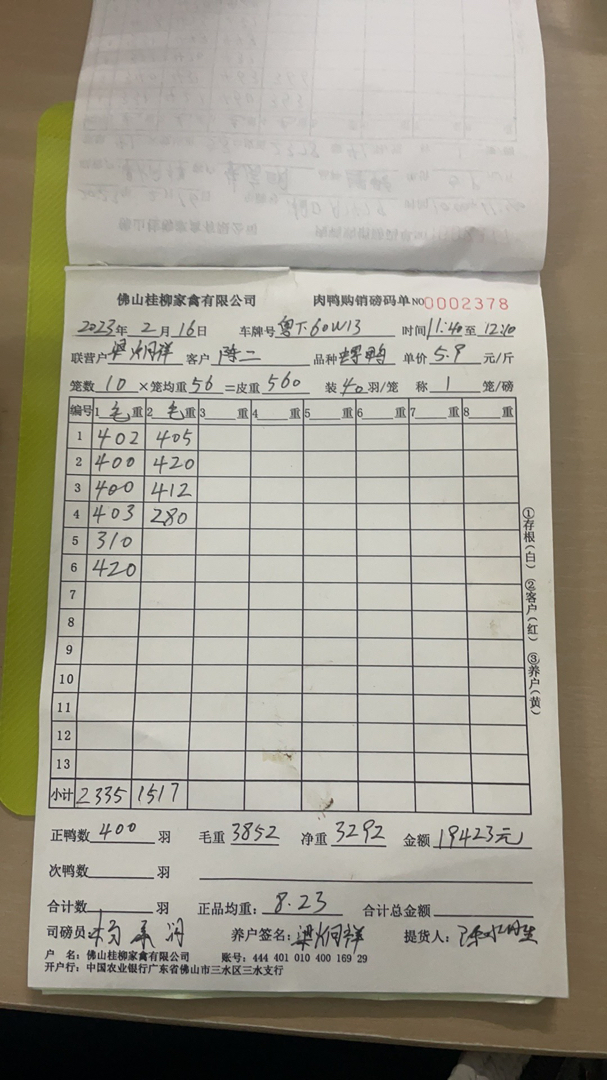 佛山桂柳家禽有限公司 肉鸭购销磅码单 NO 0002378
2023年2月16日 车牌号 粤T·60W13 时间11:40至12:10
联营户 梁炳祥 客户 陈二 品种 鸭 单价 5.9 元/斤
笼数 10 ×笼均重 56 =皮重 560 装 40 羽/笼 称 1 笼/磅
编号 1 毛重 2 毛重 3 重 4 重 5 重 6 重 7 重 8 重
1 402 405
2 400 420
3 400 412
4 403 280
5 310
6 420
7
8
9
10
11
12
13
小计 2335 1517
①存根(白) ②客户(红) ③养户(黄)
正鸭数 400 羽 毛重 3852 净重 3292 金额 19423元
次鸭数 羽
合计数 羽 正品均重: 8.23 合计总金额
司磅员: 养户签名: 梁炳祥 提货人:
户 名: 佛山桂柳家禽有限公司 账号: 444 401 010 400 169 29
开户行: 中国农业银行广东省佛山市三水区三水支行